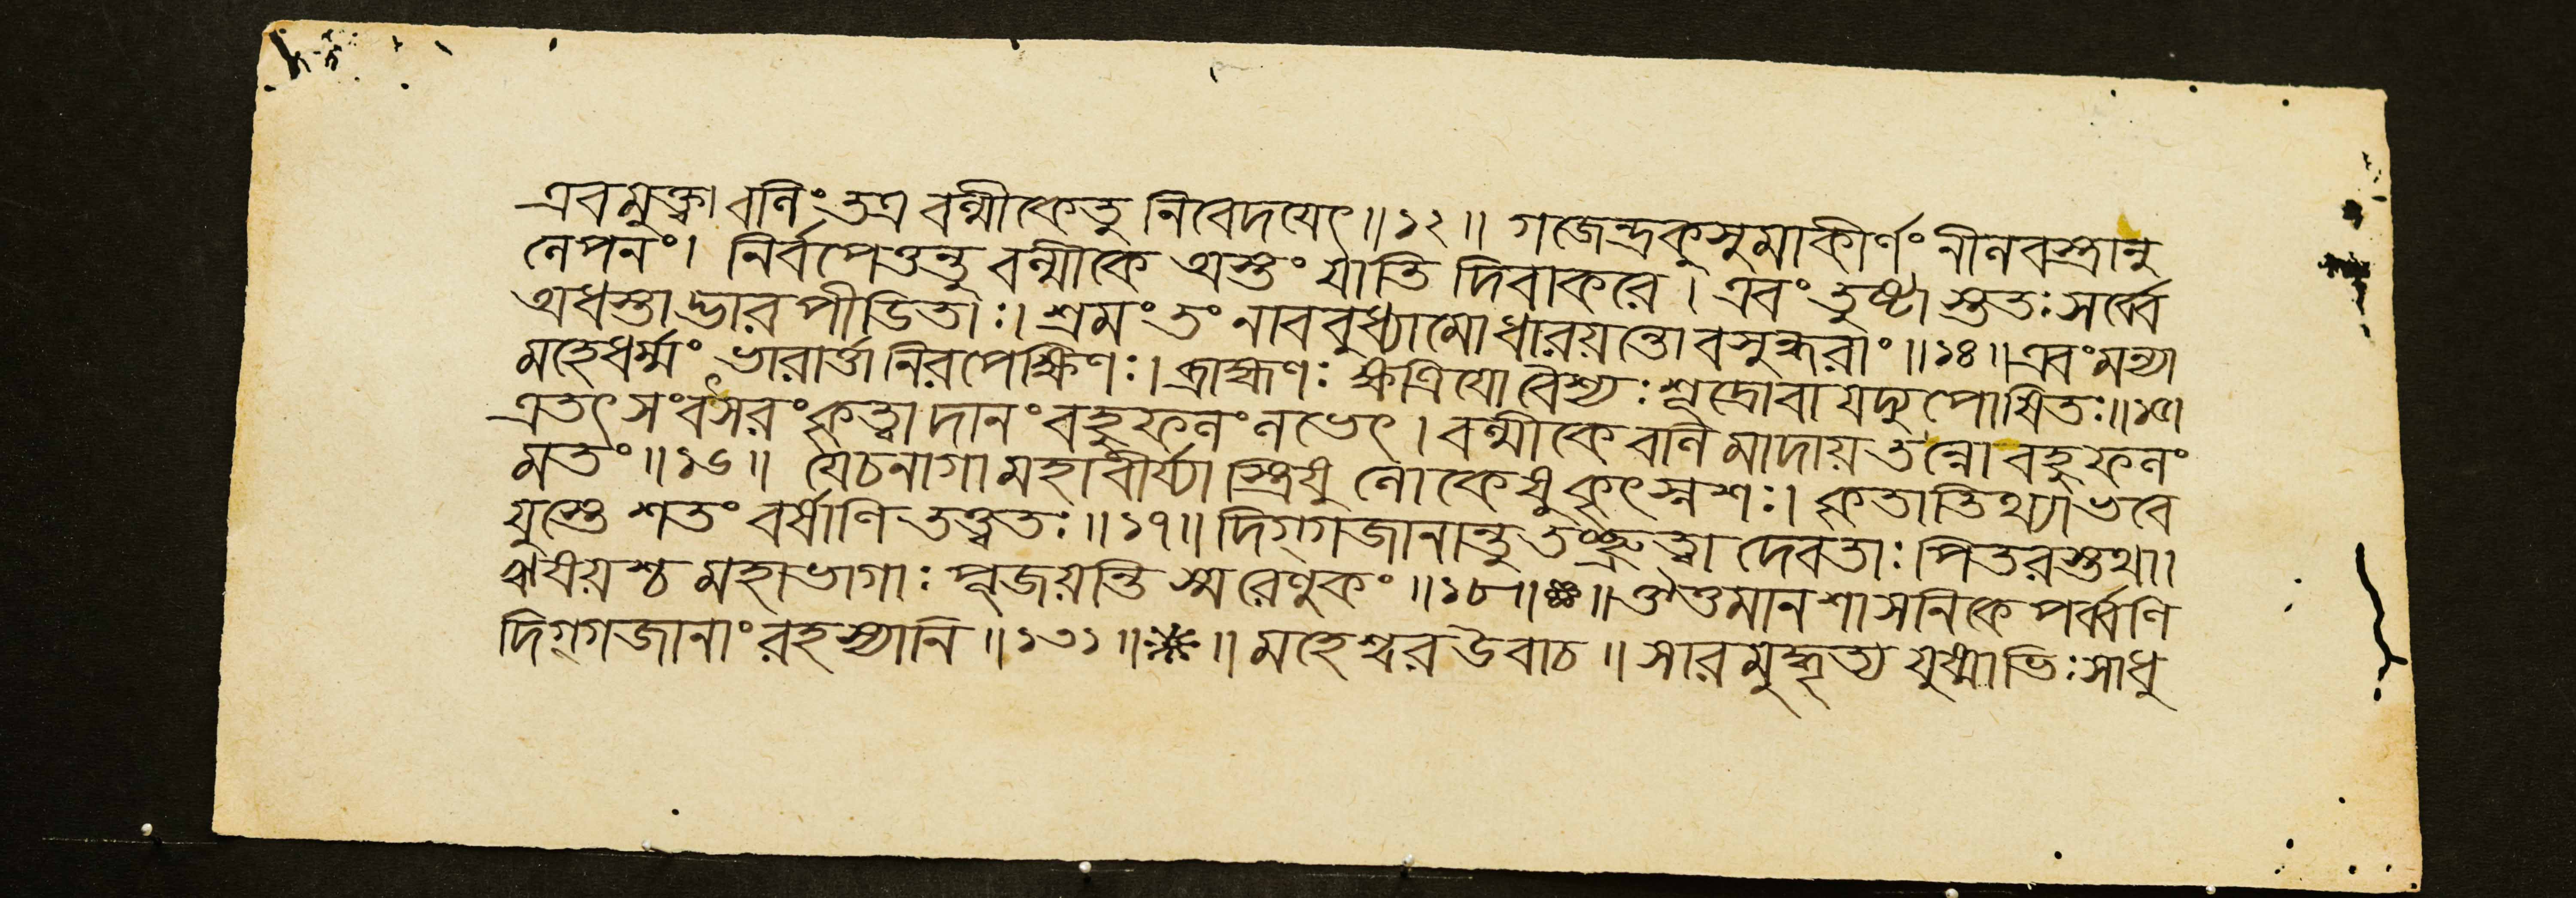 এবমুক্ত্বা বলিং তত্র বল্মীকেতু নিবেদয়েৎ॥১২॥ গজেন্দ্রকুসুমাকীর্ণং নীলবস্ত্রানু
লেপনং। নির্বপেত্তন্তু বল্মীকে অস্তং যাতি দিবাকরে। এবং তুষ্টা স্ততঃ সর্ব্বে
অধস্তাদ্ভার পীডিতাঃ। শ্রমং তং নাববুধ্যামো ধারয়ন্তো বসুন্ধরাং॥১৪॥ এবং মন্যা
মহে ধর্ম্মং ভারার্ত্তা নিরপেক্ষিণঃ। ব্রাহ্মণঃ ক্ষত্রিয়ো বৈশ্যঃ শূদ্রো বা যদ্যুপোষিতঃ॥১৫॥
এতৎ সংবৎসরং কৃত্বা দানং বহুফলং লভেৎ। বল্মীকে বলি মাদায় তন্নো বহুফলং
মতং॥১৬॥ যেচনাগা মহাবীর্য্যা স্ত্রিষু লোকেষু কৃৎস্নশঃ। কৃতাতিথ্যা ভবে
যুস্তে শতং বর্ষাণি তত্ত্বতঃ॥১৭॥ দিগ্গজানান্তু তৎশ্রুত্বা দেবতাঃ পিতরস্তথা।
ঋষয়শ্চ মহাভাগাঃ পূজয়ন্তি স্ম রেণুকং॥১৮॥ꣿ॥ ঔত্তমানশাসনিকে পর্ব্বণি
দিগ্গজানাং রহস্যানি॥১৩১॥*॥ মহেশ্বর উবাচ॥ সারমুদ্ধৃত্য যুষ্মাভিঃ সাধু